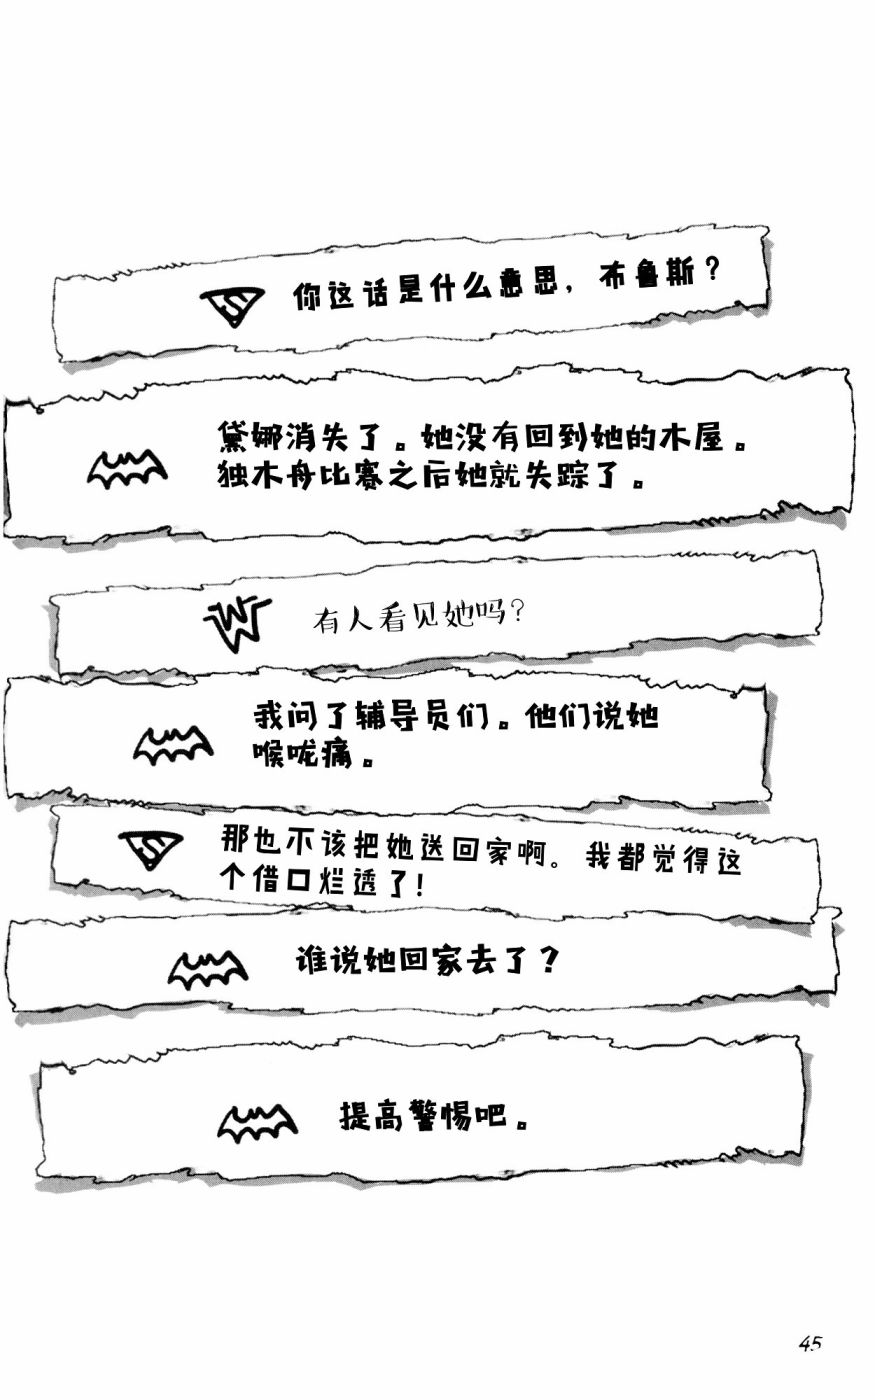 你这话是什么意思，布鲁斯？
黛娜消失了。她没有回到她的木屋。
独木舟比赛之后她就失踪了。
有人看见她吗？
我问了辅导员们。他们说她
喉咙痛。
那也不该把她送回家啊。我都觉得这
个借口烂透了！
谁说她回家去了？
提高警惕吧。
45